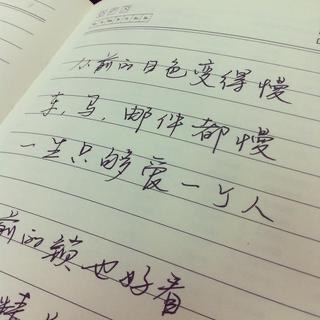 从前的日色变得慢
车,马,邮件都慢
一生只够爱一个人
前的锁也好看